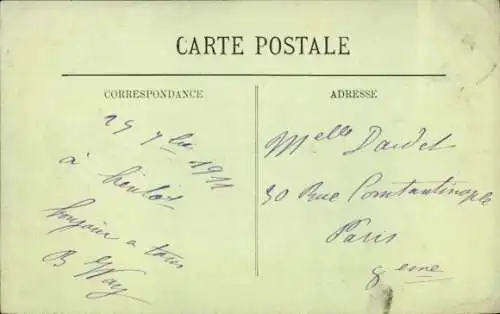 CARTE POSTALE
CORRESPONDANCE
29 7bre 1911
à bientôt
bonjour a tous
B Way
ADRESSE
Melle Dardet
30 Rue Constantinople
Paris
8eme